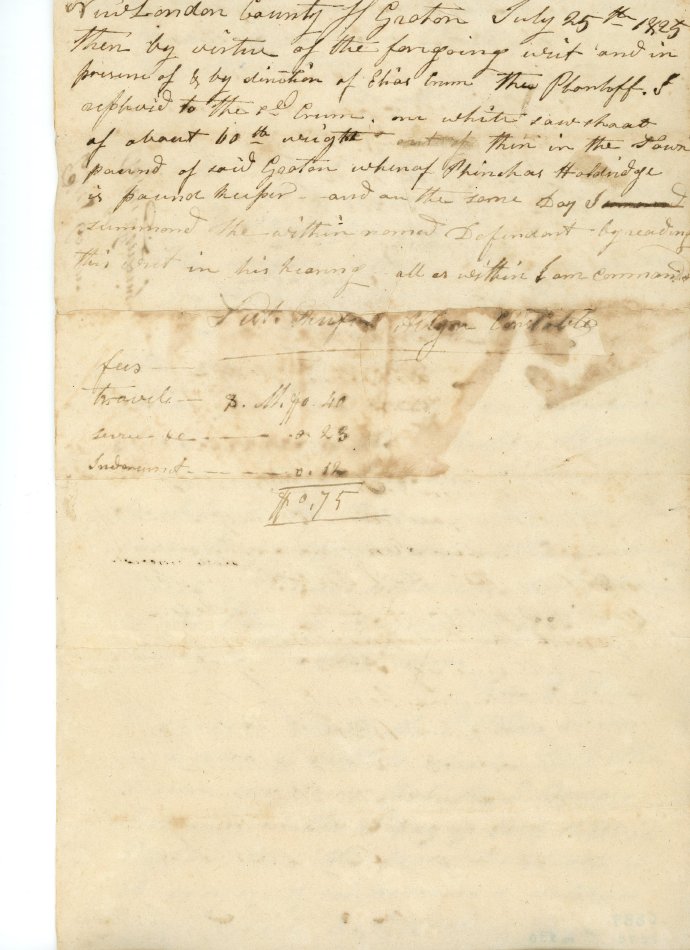 New London County ss Groton July 25th 1825
then by virtue of the foregoing writ and in
presenc of & by direction of Elias Crum the Plantoff. I
replevid to the sd Crum. one white sow shoat
of about 60 lb weight then in the Town
pound of said Groton whereof Phinehas Holdridge
is pound keeper and on the same Day I
summond the within named Defendant by reading
this writ in his hearing all as within I am command
Constable
fees
travel M. $0.40
service 0.23
Indorsment 0.12
$0,75